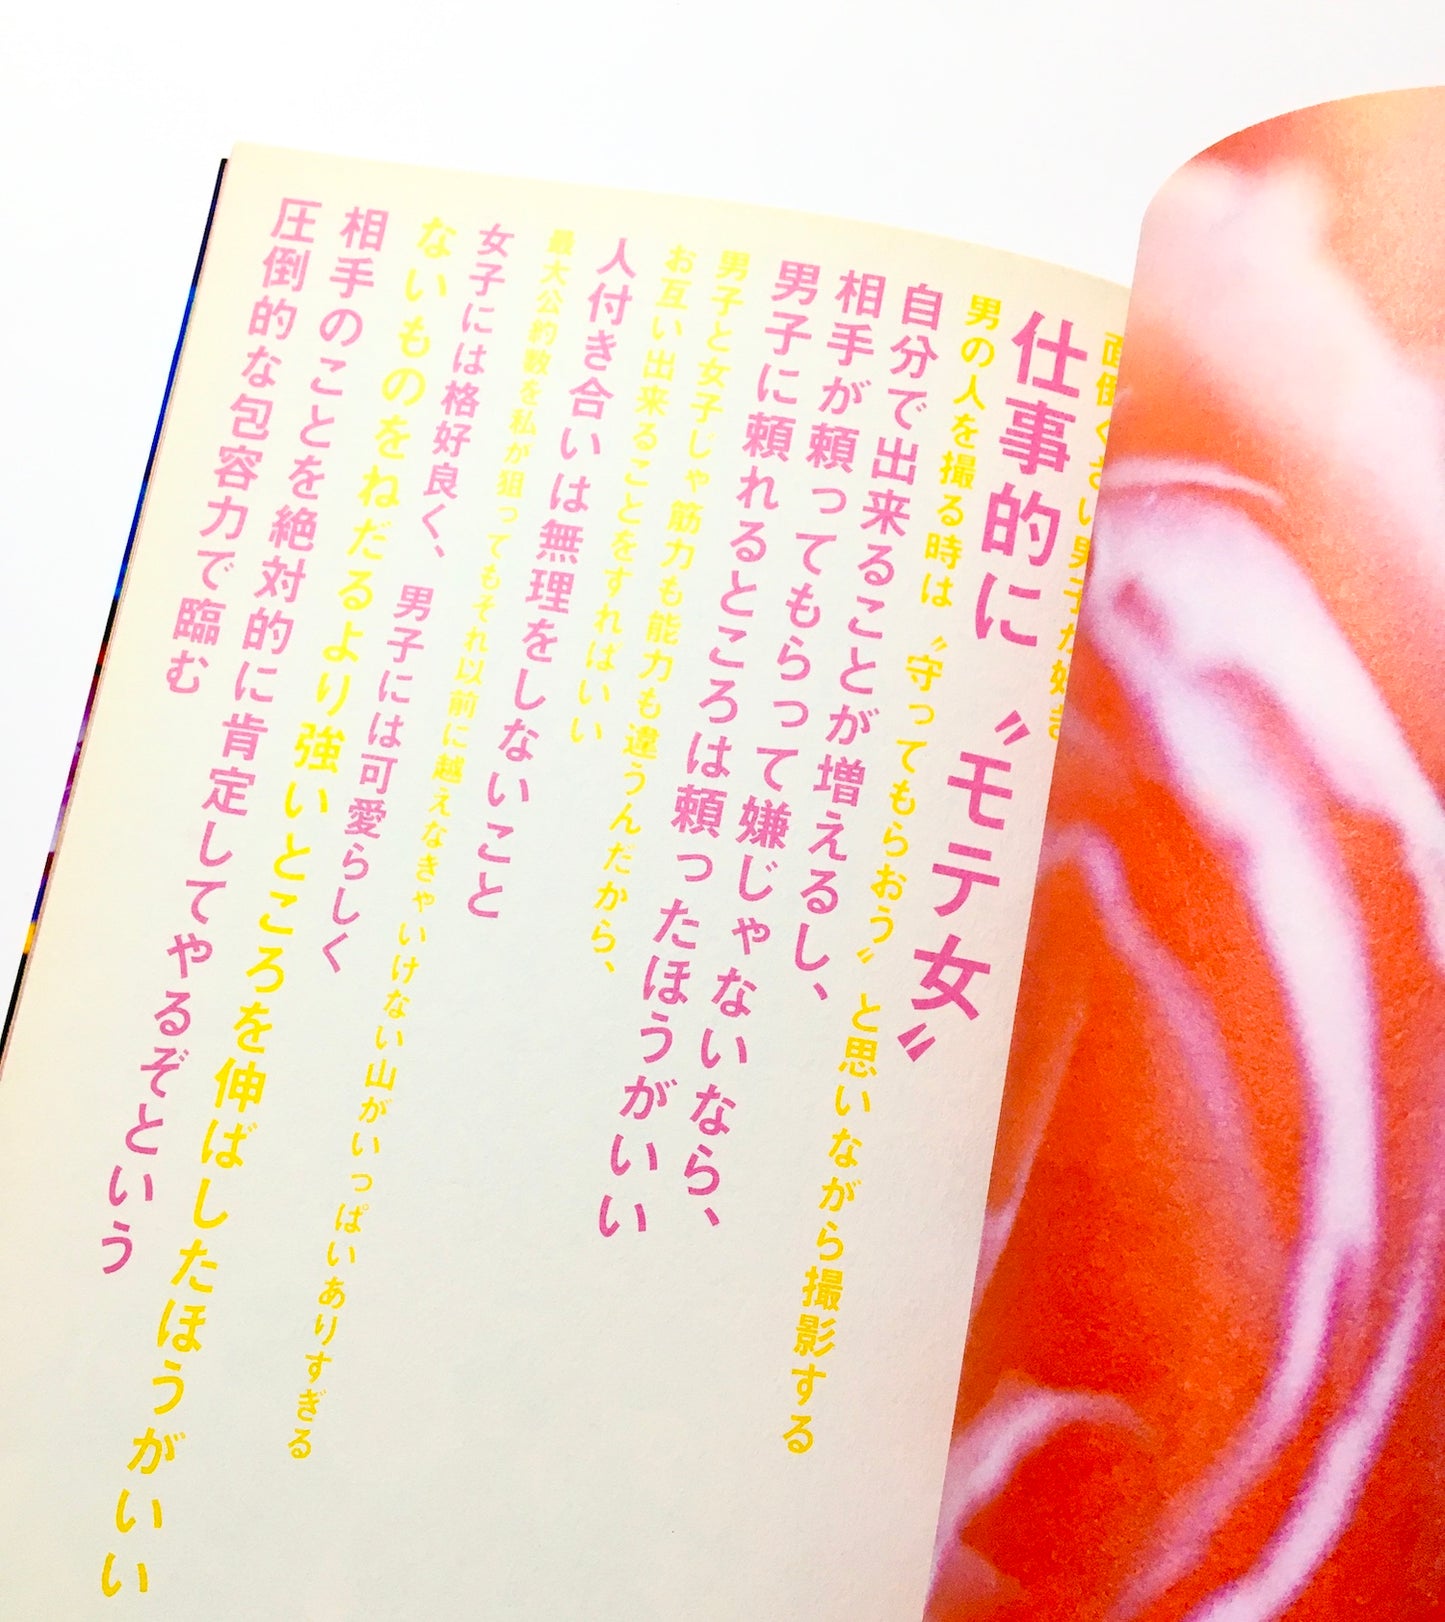 面倒くさい男子が好き
仕事的に〝モテ女〟
男の人を撮る時は〝守ってもらおう〟と思いながら撮影する
自分で出来ることが増えるし、
相手が頼ってもらって嫌じゃないなら、
男子に頼れるところは頼ったほうがいい
男子と女子じゃ筋力も能力も違うんだから、
お互い出来ることをすればいい
人付き合いは無理をしないこと
最大公約数を私が狙ってもそれ以前に越えなきゃいけない山がいっぱいありすぎる
女子には格好良く、男子には可愛らしく
ないものをねだるより強いところを伸ばしたほうがいい
相手のことを絶対的に肯定してやるぞという
圧倒的な包容力で臨む